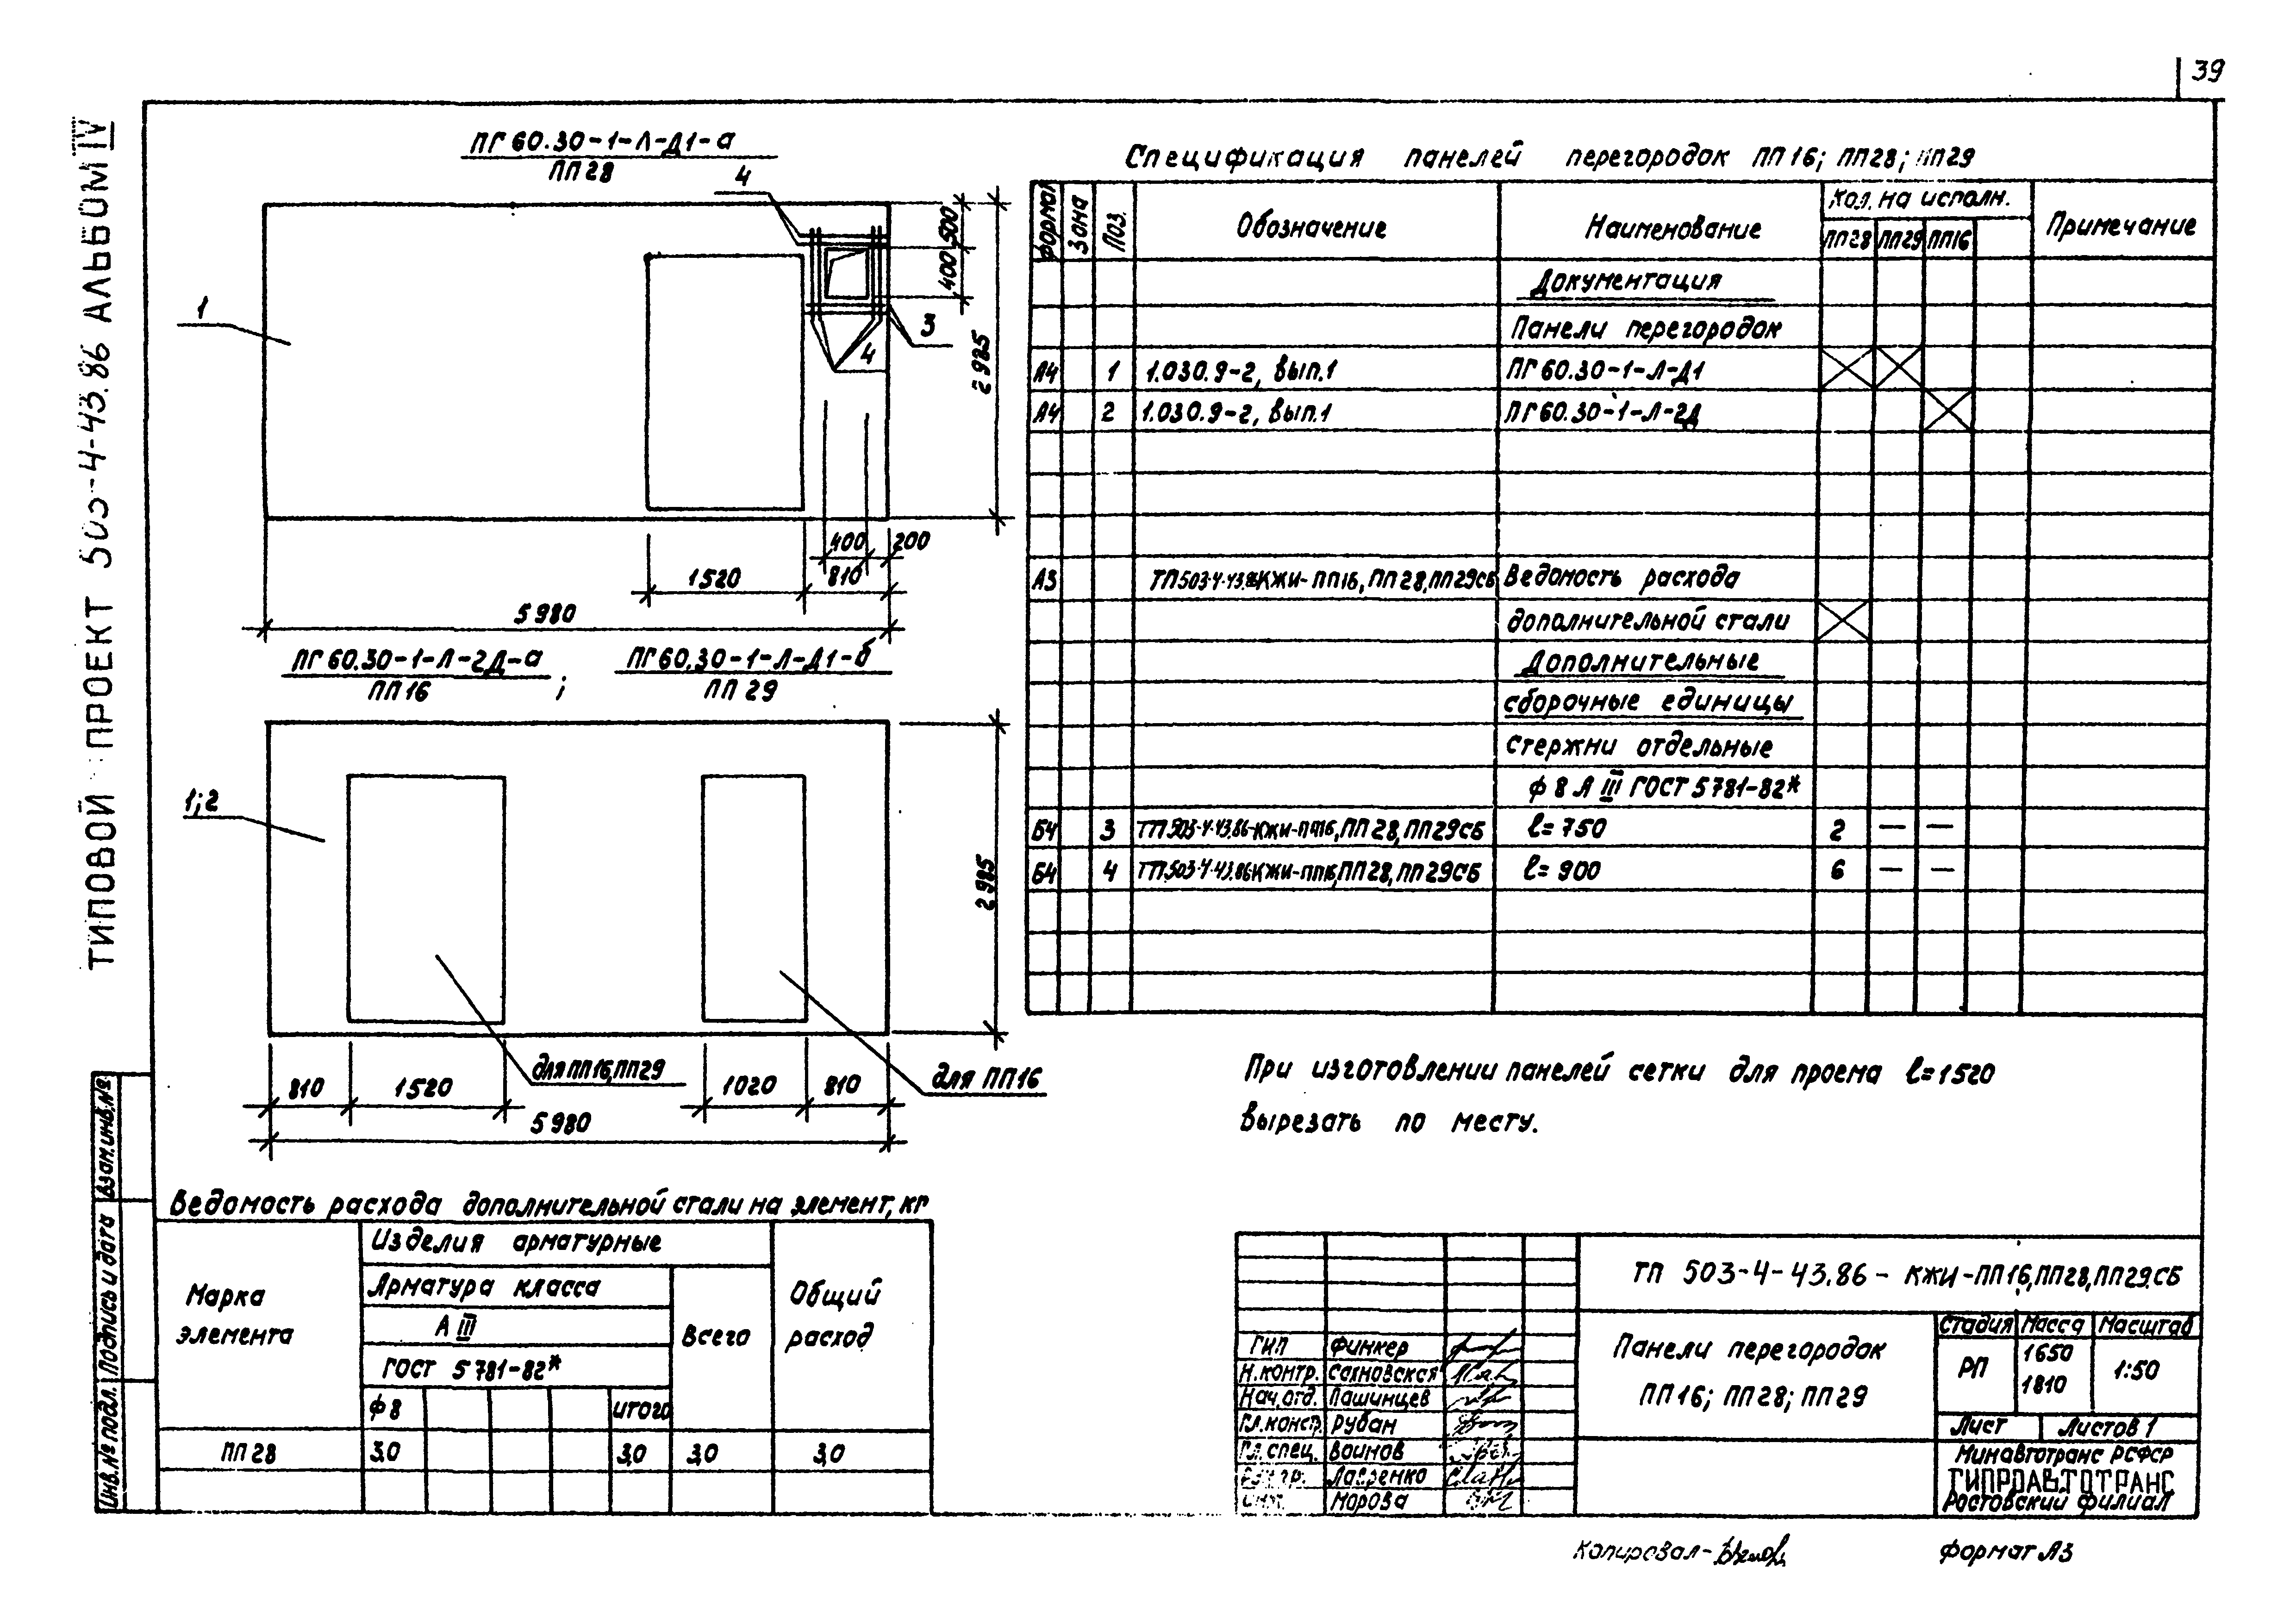 39
ТИПОВОЙ ПРОЕКТ 503-4-43.86 АЛЬБОМ IV
ПГ 60.30-1-Л-Д1-а
ПП 28
4
1
3
4
500
400
2985
400
200
1520
810
5980
ПГ 60.30-1-Л-2Д-а
ПП 16
;
ПГ 60.30-1-Л-Д1-б
ПП 29
1;2
2985
для ПП16, ПП29
для ПП16
810
1520
1020
810
5980
Спецификация панелей перегородок ПП 16; ПП28; ПП29
Формат
Зона
Поз.
Обозначение
Наименование
Кол. на исполн.
ПП28
ПП29
ПП16
Примечание
Документация
Панели перегородок
А4 1 1.030.9-2, вып.1 ПГ 60.30-1-Л-Д1
А4 2 1.030.9-2, вып.1 ПГ 60.30-1-Л-2Д
А3 ТП503-4-43.86КЖИ-ПП16, ПП 28, ПП29СБ Ведомость расхода
дополнительной стали
Дополнительные
сборочные единицы
Стержни отдельные
ф 8 А III ГОСТ 5781-82*
Б4 3 ТП.503-4-43.86-КЖИ-ПП16, ПП 28, ПП29СБ ℓ= 750 2 — —
Б4 4 ТП.503-4-43.86КЖИ-ПП16, ПП28, ПП29СБ ℓ= 900 6 — —
При изготовлении панелей сетки для проема ℓ=1520
вырезать по месту.
Ведомость расхода дополнительной стали на элемент, кг
Марка
элемента
Изделия арматурные
Арматура класса
А III
ГОСТ 5781-82*
ф 8
итого
Всего
Общий
расход
ПП 28 3,0 3,0 3,0 3,0
Взам.инв.№
Подпись и дата
Инв.№ подл.
ТП 503-4-43.86 - КЖИ-ПП16, ПП28, ПП29.СБ
Панели перегородок
ПП 16; ПП 28; ПП 29
Стадия Масса Масштаб
РП
1650
1810
1:50
Лист
Листов 1
Минавтотранс РСФСР
ГИПРОАВТОТРАНС
Ростовский филиал
ГИП Финкер
Н.контр. Сахновская
Нач.отд. Пашинцев
Гл.констр. Рубан
Гл.спец. Воинов
Лавренко
Морова
Копировал-
Формат А3